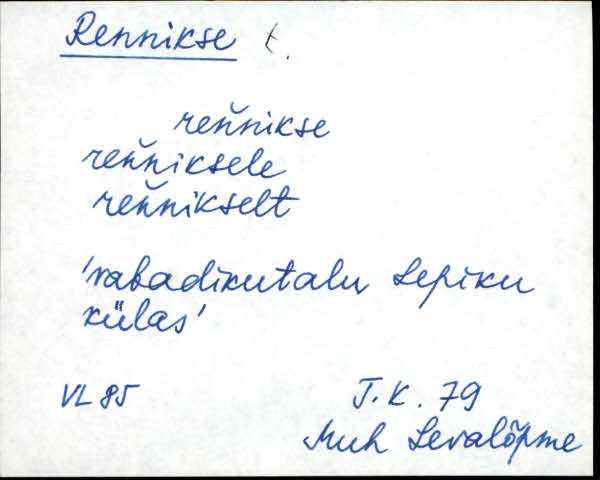 Rennikse t.
reňnikse
reňniksele
reňnikselt
'vabadikutalu Lepiku
külas'
VL 85 J.K. 79
Muh Levalõpme